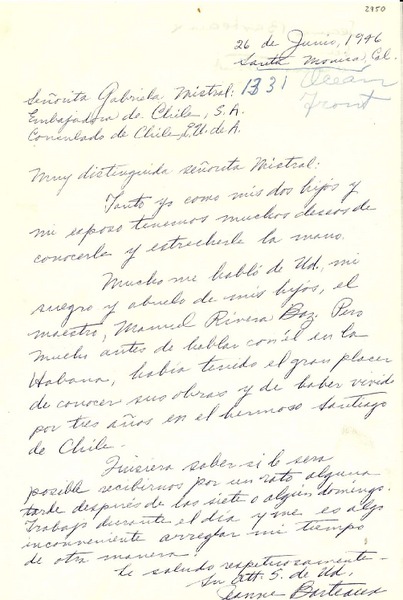 2950
26 de Junio, 1946
Santa Monica, Cal.
1331 Ocean
Front
Señorita Gabriela Mistral:
Embajadora de Chile, S.A.
Consulado de Chile, E.U. de A.
Muy distinguida señorita Mistral:
Tanto yo como mis dos hijos y
mi esposo tenemos muchos deseos de
conocerla y estrecharle la mano.
Mucho me habló de Ud., mi
suegro y abuelo de mis hijos, el
maestro, Manuel Rivera Baz. Pero
mucho antes de hablar con él en la
Habana, había tenido el gran placer
de conocer sus obras y de haber vivido
por tres años en el hermoso Santiago
de Chile.
Quisiera saber si le sera
posible recibirnos por un rato alguna
tarde después de las siete o algún domingo.
Trabajo durante el día y me es algo
inconveniente arreglar mi tiempo
de otra manera.
Le saluda respetuosamente
Su Att. S. de Ud.
Jeanne